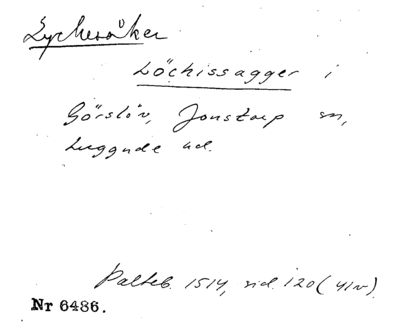 Lyckesåker
Löchissagger i
Görslöv, Jonstorp sn,
Luggude hd.
Palteb. 1514, sid. 120 (41v)
Nr 6486.